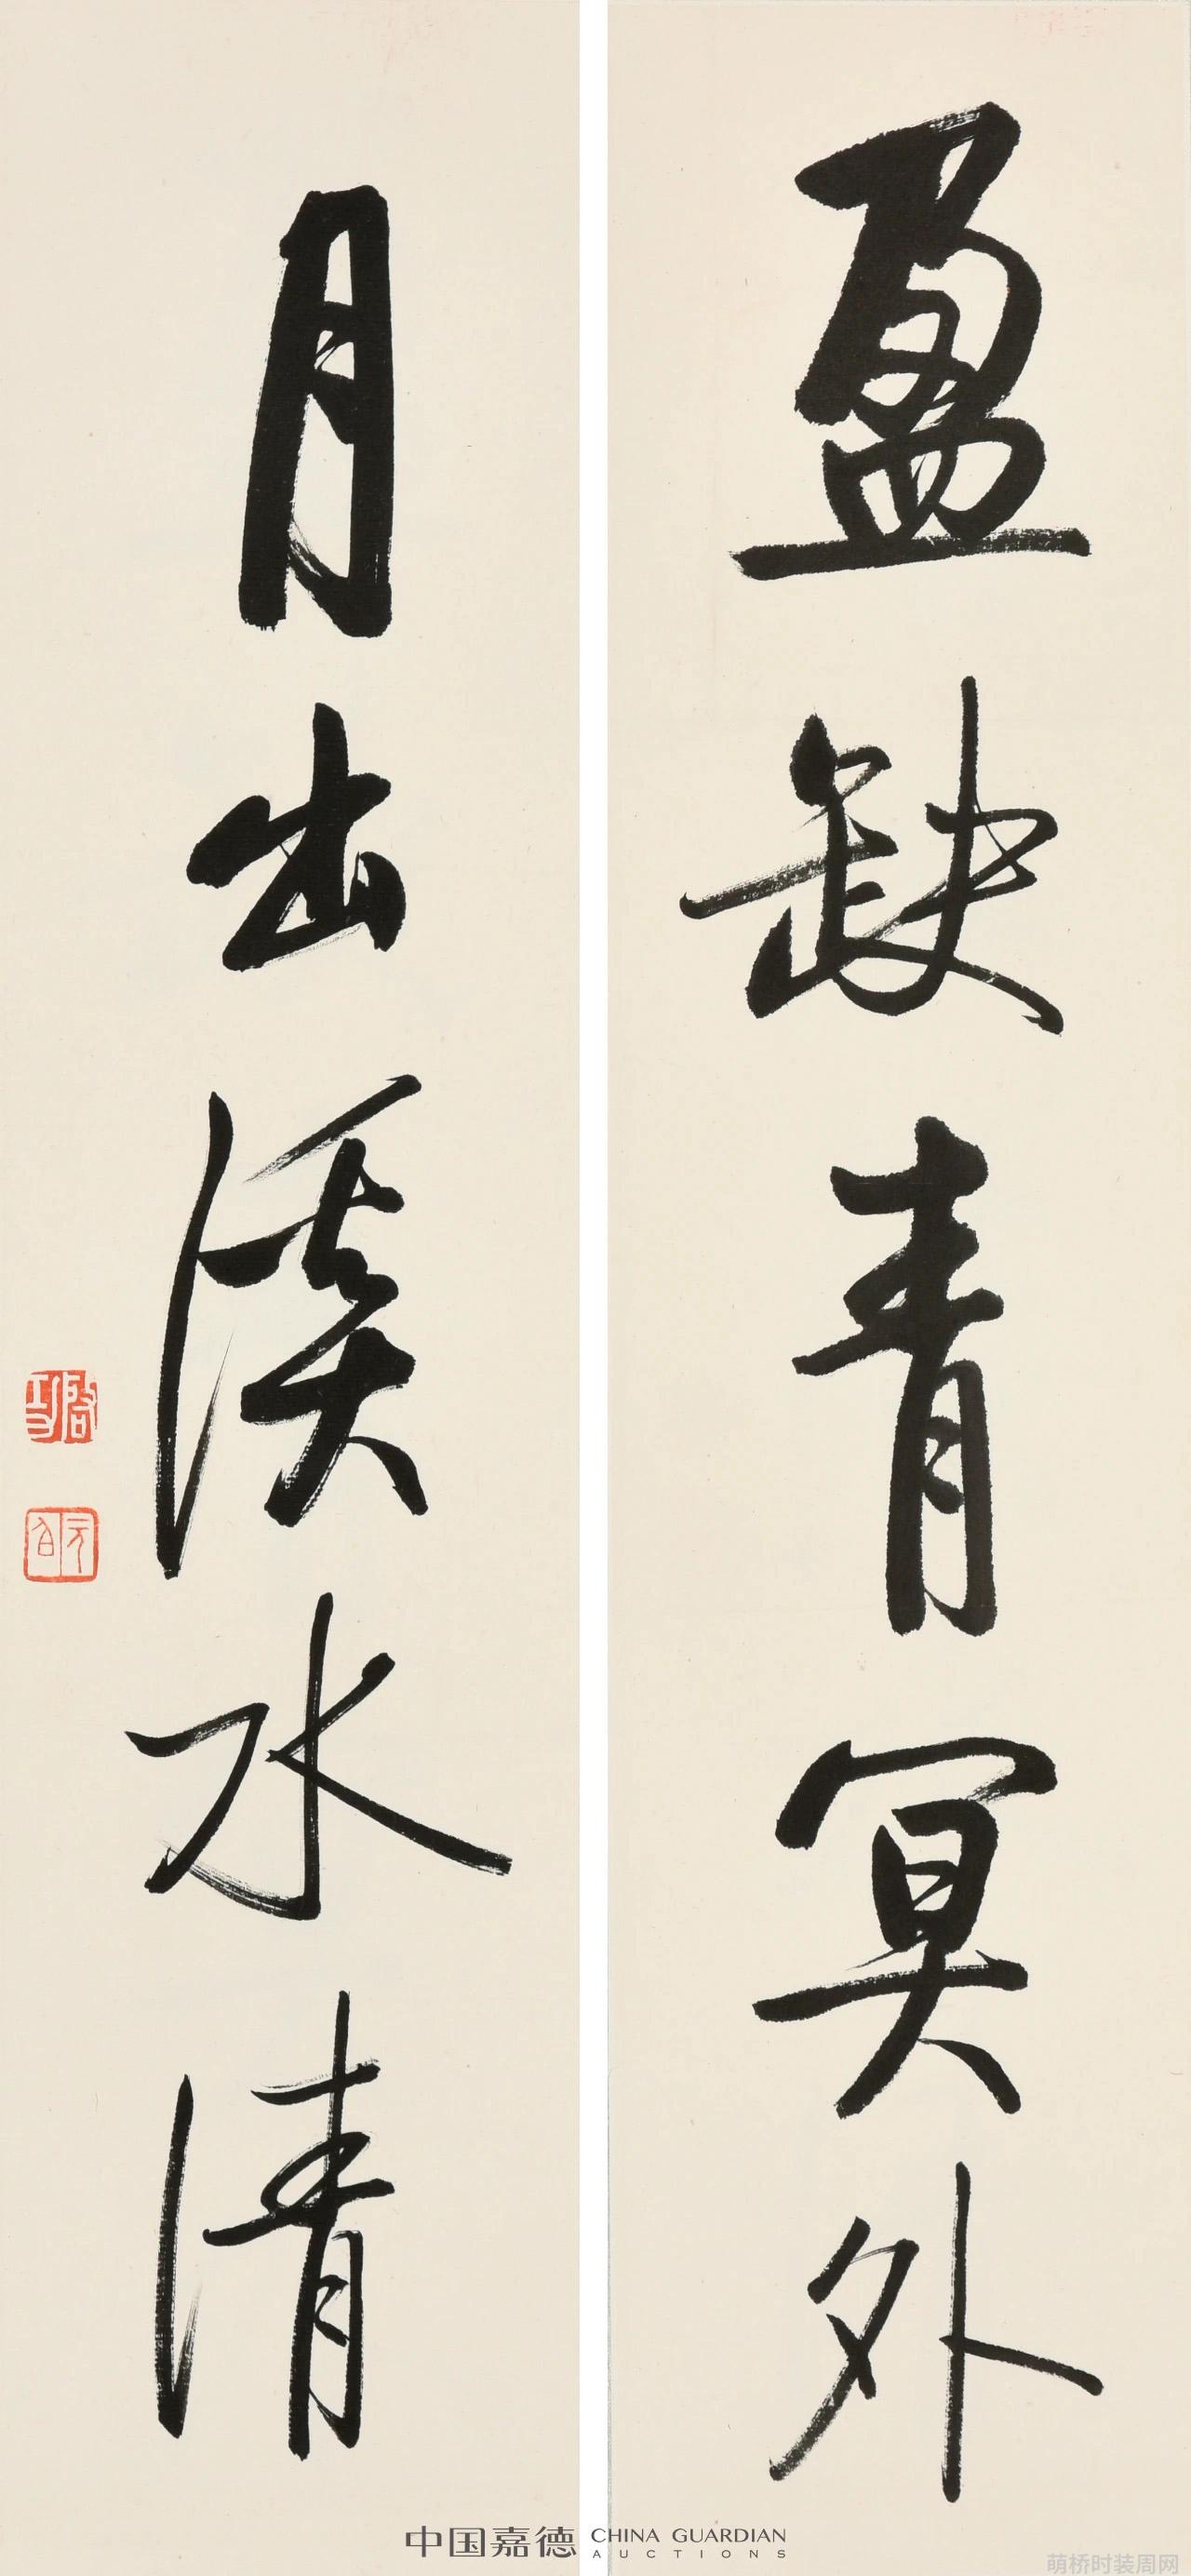 盈缺青冥外
月出溪水清
啟功
元白
中国嘉德 CHINA GUARDIAN
AUCTIONS
萌桥时装周网